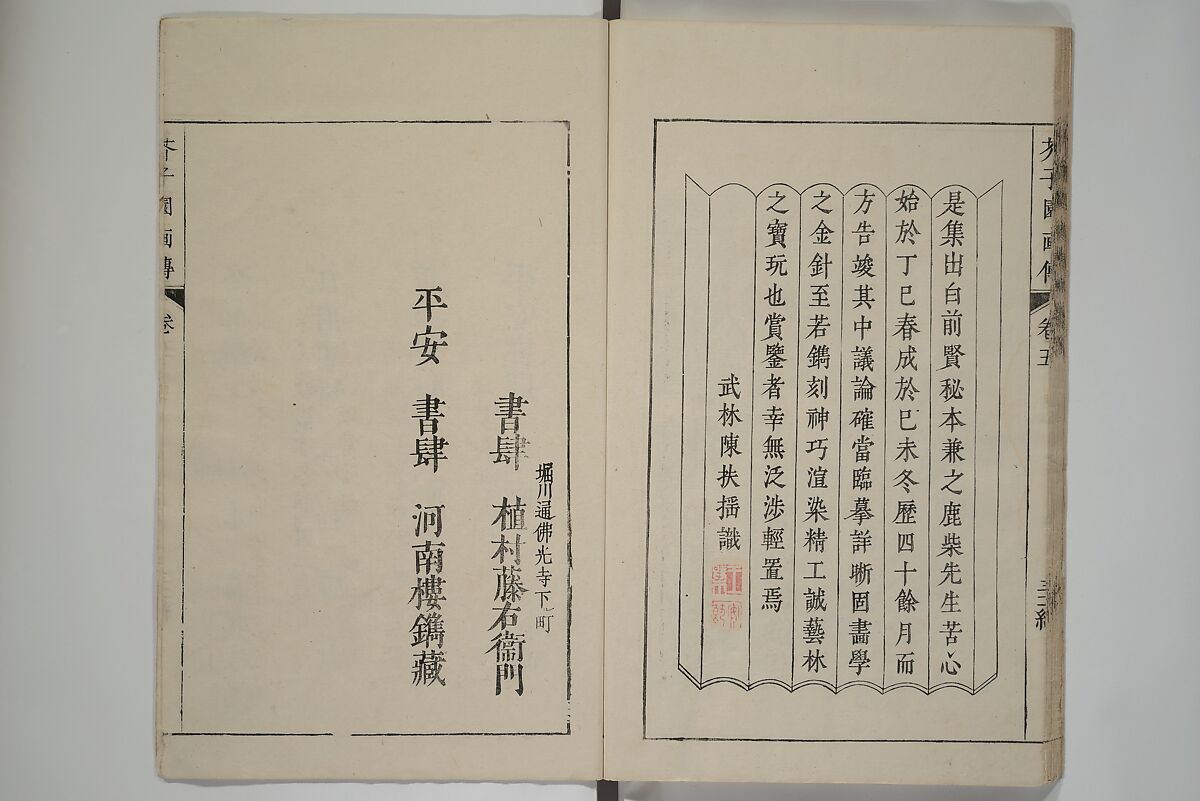 芥子園画傳
卷五
是集出自前賢秘本兼之鹿柴先生苦心
始於丁巳春成於巳未冬歷四十餘月而
方告竣其中議論確當臨摹詳晰固畵學
之金針至若鐫刻神巧渲染精工誠藝林
之寶玩也賞鑒者幸無泛涉輕置焉
武林陳扶揺識
堀川通佛光寺下ル町
書肆 植村藤右衞門
平安 書肆 河南樓鐫藏
芥子園画傳
卷